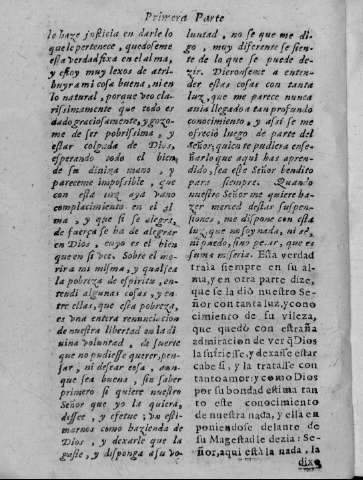 Primera Parte
le haze justicia en darle lo
que le pertenece, quedoseme
esta verdad fixa en el alma,
y estoy muy lexos de atri-
buyr a mi cosa buena, ni en
lo natural, porque veo cla-
rissimamente que todo es
dado graciosamente, y gozo-
me de ser pobrissima, y
estar colgada de Dios,
esperando todo el bien,
de su divina mano, y
pareceme impossible, que
con esta luz aya vano
complacimiento en el al
ma, y que si se alegra,
de fuerça se ha de alegrar
en Dios, cuyo es el bien
que en si vee. Sobre el mo-
rir a mi misma, y qual sea
la pobreza de espiritu, en-
tendi algunas cosas, y en-
tre ellas, que esta pobreza,
es una entera renunciacion
de nuestra libertad en la di
uina voluntad, de suerte
que no pudiesse querer, pen-
sar, ni desear cosa, aun-
que sea buena, sin saber
primero si quiere nuestro
Señor que yo la quiera,
disse, y efetue; un esti-
marnos como hazienda de
Dios, y dexarle que la
gaste, y disponga a su vo-
luntad, no se que me di-
go, muy diferente se sien-
te de lo que se puede de-
zir. Dieronseme a enten-
der estas cosas con tanta
luz, que me parece nunca
auia llegado a tan profundo
conocimiento, y assi se me
ofreciò luego de parte del
Señor; quien te pudiera ense-
ñar lo que aqui has apren-
dido, sea esse Señor bendito
para siempre. Quando
nuestro Señor me quiere ha-
zer merced destas suspen-
siones, me dispone con esta
luz, que no soy nada, ni sè,
ni puedo, sino pecar, que es
suma miseria. Esta verdad
traia siempre en su al-
ma, y en otra parte dize,
que se la diò nuestro Se-
ñor con tanta luz, y cono-
cimiento de su vileza,
que quedó con estraña
admiracion de ver q̃ Dios
la sufriesse, y dexasse estar
cabe si, y la tratasse con
tanto amor; y como Dios
por su bondad estima tan
to este conocimiento
de nuestra nada, y ella en
poniendose delante de
su Magestad le dezia: Se-
ñor, aqui està la nada, la
dixo